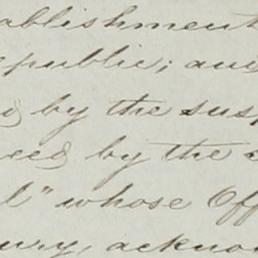 ablishment
epublic; and
d by the sus
eed by the
l" whose Off
ury, ackno